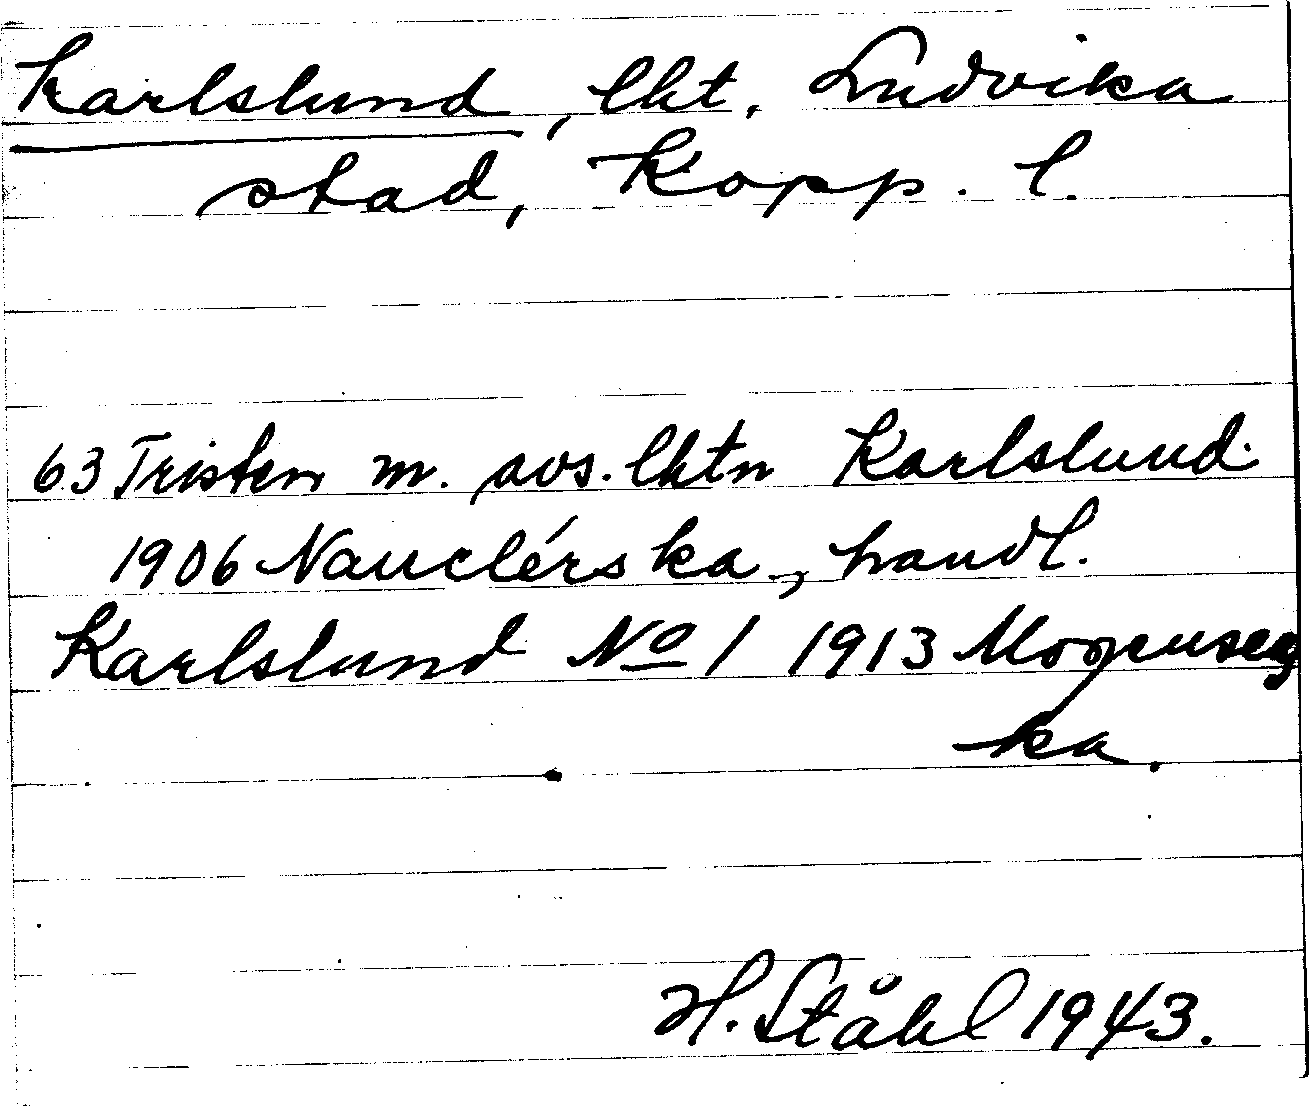 Karlslund, lht. Ludvika
stad, Kopp. l.
63 Tristen m. avs. lhtn Karlslund
1906 Nauclérska, handl.
Karlslund No 1 1913 Mogensens
ka.
H. Ståhl 1943.